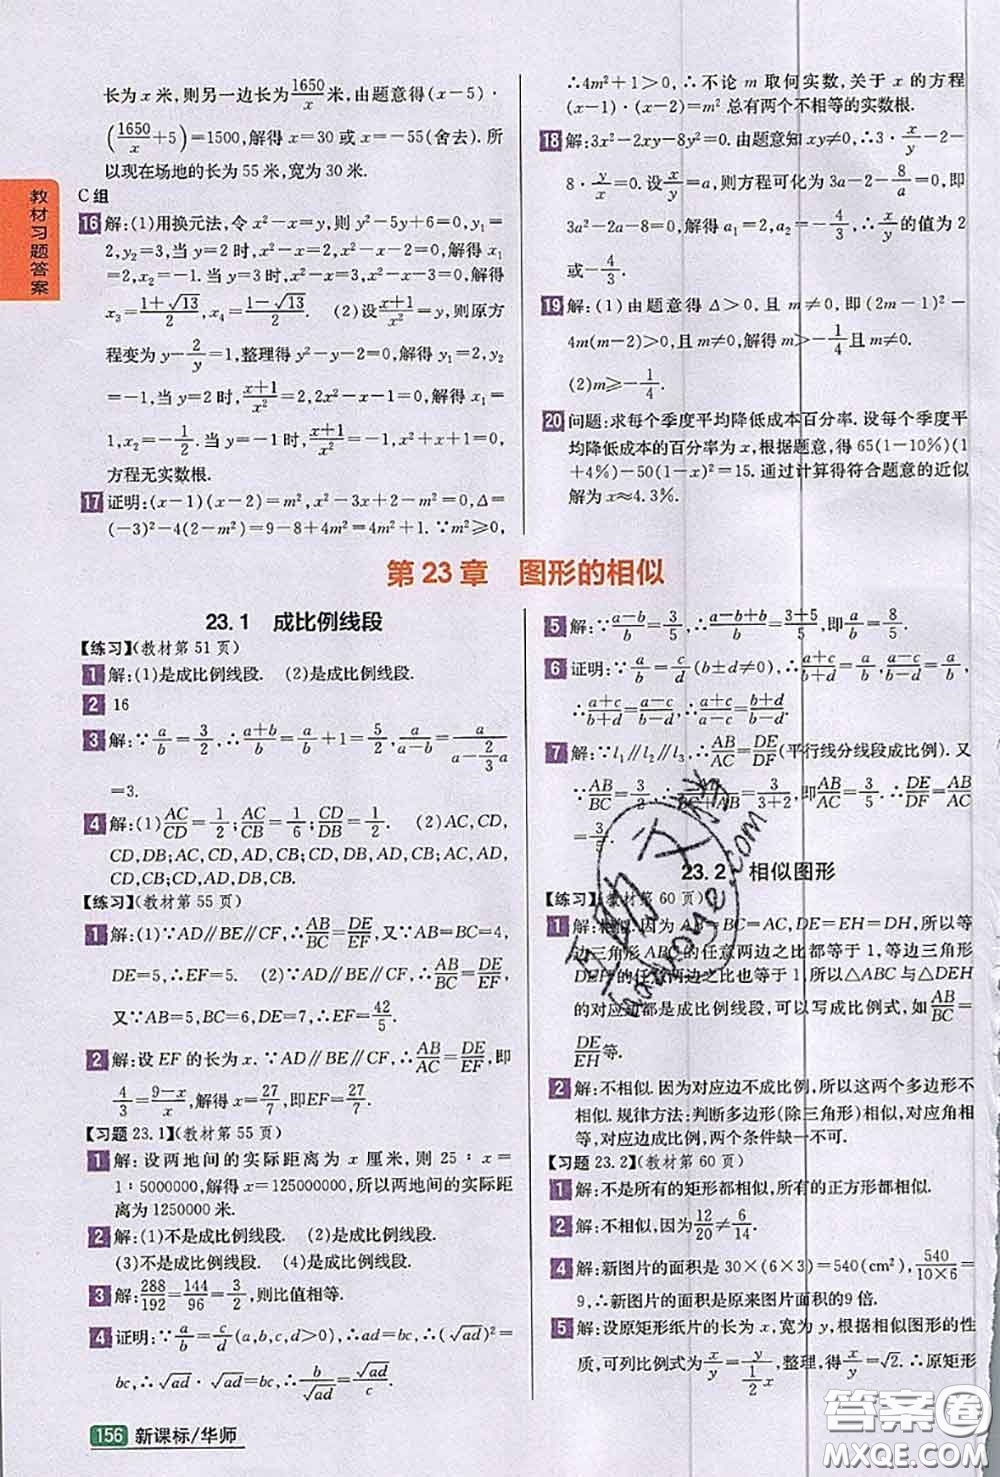 教材习题答案
长为 x 米,则另一边长为1650/x 米,由题意得(x−5)·
(1650/x+5)=1500,解得 x=30 或 x=−55(舍去).所
以现在场地的长为 55 米,宽为 30 米.
C 组
16 解:(1)用换元法,令 x²−x=y,则 y²−5y+6=0,y₁=
2,y₂=3,当 y=2 时,x²−x=2,x²−x−2=0,解得 x₁
=2,x₂=−1.当 y=3 时,x²−x=3,x²−x−3=0,解得
x₃=(1+√13)/2,x₄=(1−√13)/2. (2)设(x+1)/x²=y,则原方
程变为 y−2/y=1,整理得 y²−y−2=0,解得 y₁=2,y₂=
−1,当 y=2 时,(x+1)/x²=2,2x²−x−1=0,解得 x₁=
1,x₂=−1/2.当 y=−1 时,(x+1)/x²=−1,x²+x+1=0,
方程无实数根.
17 证明:(x−1)(x−2)=m²,x²−3x+2−m²=0,Δ=
(−3)²−4(2−m²)=9−8+4m²=4m²+1.∵m²≥0,
∴4m²+1>0,∴不论 m 取何实数,关于 x 的方程
(x−1)·(x−2)=m² 总有两个不相等的实数根.
18 解:3x²−2xy−8y²=0.由题意知 xy≠0,∴3·x/y−2−
8·y/x=0.设x/y=a,则方程可化为 3a−2−8/a=0,即
3a²−2a−8=0,解得 a₁=2,a₂=−4/3,∴x/y的值为 2
或−4/3.
19 解:(1)由题意得 Δ>0,且 m≠0,即(2m−1)²−
4m(m−2)>0,且 m≠0,解得 m>−1/4且 m≠0.
(2)m≥−1/4.
20 问题:求每个季度平均降低成本百分率.设每个季度平
均降低成本的百分率为 x,根据题意,得 65(1−10%)(1
+4%)−50(1−x)²=15.通过计算得符合题意的近似
解为 x≈4.3%.
第 23 章 图形的相似
23.1 成比例线段
【练习】(教材第 51 页)
1 解:(1)是成比例线段. (2)是成比例线段.
2 16
3 解:∵a/b=3/2,∴(a+b)/b=a/b+1=5/2,a/(a−b)=a/(a−(2/3)a)
=3.
4 解:(1)AC/CD=1/2;AC/CB=1/6;CD/DB=1/2. (2)AC,CD,
CD,DB;AC,CD,AD,CB;AC,AD,CD,CB;AD,
CD,CB,DB.
【练习】(教材第 55 页)
1 解:(1)∵AD∥BE∥CF,∴AB/BC=DE/EF,又∵AB=BC=4,
DE=5,∴EF=5. (2)∵AD∥BE∥CF,∴AB/BC=DE/EF,
又∵AB=5,BC=6,DE=7,∴EF=42/5.
2 解:设 EF 的长为 x.∵AD∥BE∥CF,∴AB/AC=DE/EF,即
4/3=(9−x)/x,解得 x=27/7,即EF=27/7.
【习题 23.1】(教材第 55 页)
1 解:设两地间的实际距离为 x 厘米,则 25∶x=
1∶5000000,解得 x=125000000,所以两地间的实际距
离为 1250000 米.
2 解:(1)不是成比例线段. (2)是成比例线段.
(3)不是成比例线段. (4)是成比例线段.
3 解:288/192=144/96=3/2,则比值相等.
4 证明:∵a/b=c/d(a,b,c,d>0),∴ad=bc,∴(√ad)²=
bc,∴√ad·√ad=bc,∴b/√ad=√ad/c.
5 解:∵(a−b)/b=3/5,∴(a−b+b)/b=(3+5)/5,即a/b=8/5.
6 证明:∵a/b=c/d(b±d≠0),∴(a+c)/(b+d)=a/b,(a−c)/(b−d)=
a/b,∴(a+c)/(b+d)=(a−c)/(b−d),∴(a+c)/(a−c)=(b+d)/(b−d).
7 解:∵l₁∥l₂∥l₃,∴AB/AC=DE/DF(平行线分线段成比例).又
∵AB/BC=3/2,∴AB/(BC+AB)=3/(3+2),即AB/AC=3/5,∴DE/DF=AB/AC
=3/5.
23.2 相似图形
【练习】(教材第 60 页)
1 解:相似.因为 AB=BC=AC,DE=EH=DH,所以等
边三角形 ABC 的任意两边之比都等于 1,等边三角形
DEH 的任意两边之比也等于 1,所以△ABC 与△DEH
的对应边都是成比例线段,可以写成比例式,如AB/BC=
DE/EH等.
2 解:不相似.因为对应边不成比例,所以这两个多边形不
相似.规律方法:判断多边形(除三角形)相似,对应角相
等、对应边成比例,两个条件缺一不可.
【习题 23.2】(教材第 60 页)
1 解:不是所有的矩形都相似,所有的正方形都相似.
2 解:不相似,因为12/20≠6/14.
4 解:新图片的面积是 30×(6×3)=540(cm²),540/(10×6)=
9,∴新图片的面积是原来图片面积的9 倍.
5 解:设原矩形纸片的长为 x,宽为 y,根据相似图形的性
质,可列比例式为x/y=y/(½x),整理,得x/y=√2.∴原矩形
156 新课标/华师
答案圈
MXQE.COM